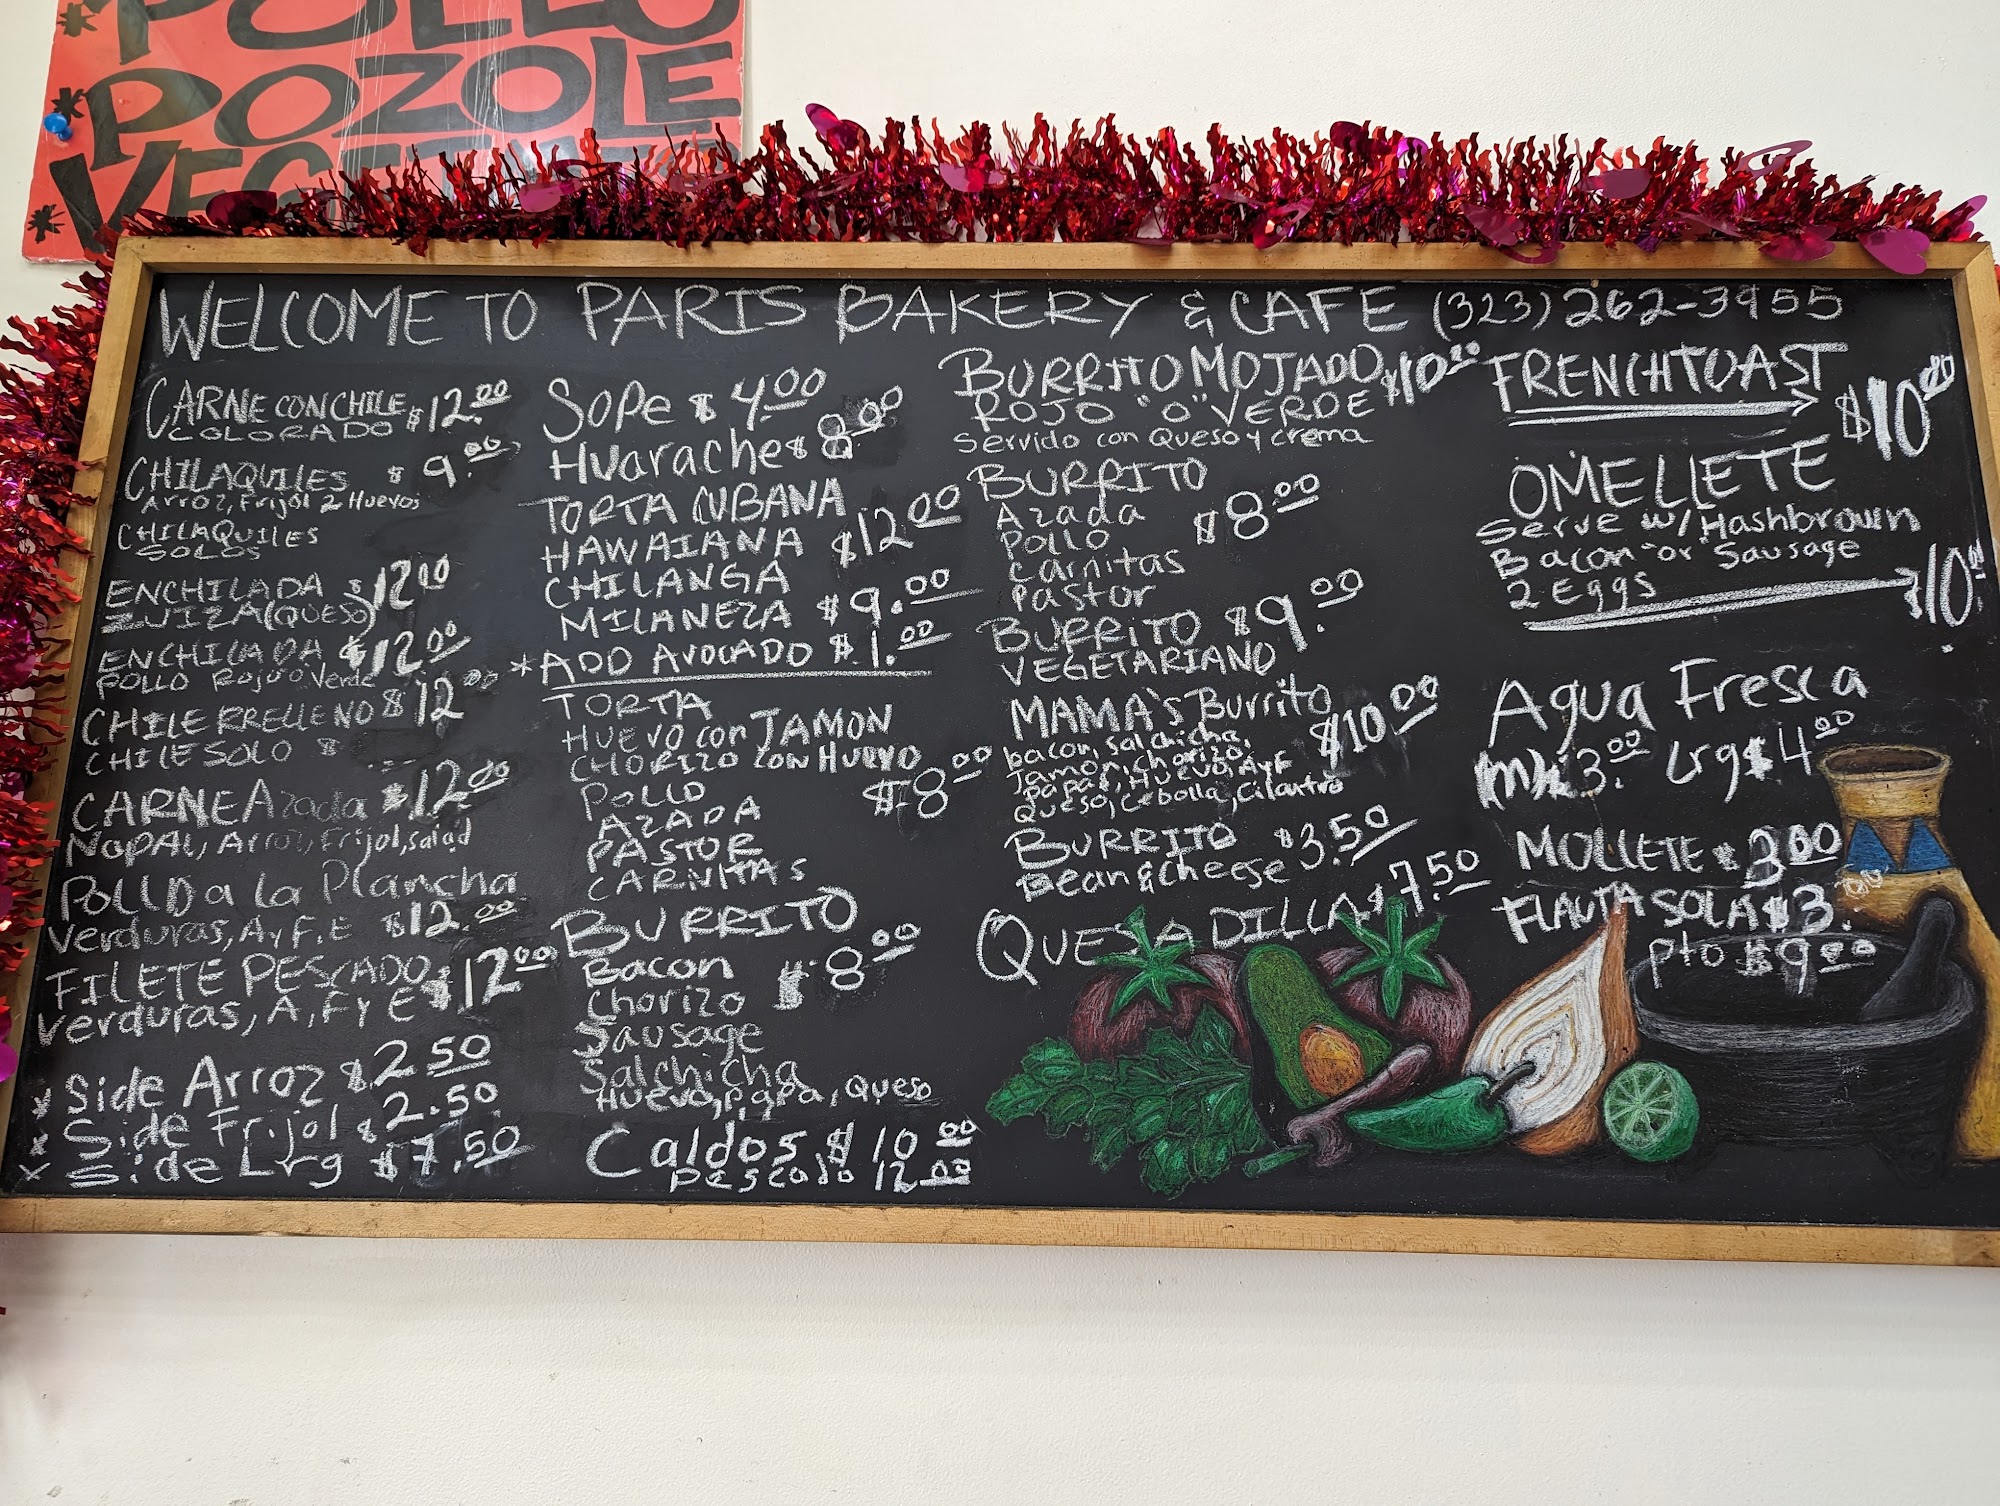 POLLO
*POZOLE
WELCOME TO PARIS BAKERY & CAFE (323) 262-3955
CARNE CON CHILE $12.00
COLORADO
CHILAQUILES $9.00
Arroz, Frijol 2 Huevos
CHILAQUILES
SOLOS
ENCHILADA $12.00
ZUIZA (QUESO)
ENCHILADA $12.00
POLLO Rojo o Verde
CHILE RRELLENO $12.00
CHILE SOLO $
CARNE Azada $12.00
NOPAL, Arroz, Frijol, salad
POLLO a la Plancha
Verduras, A y F. E $12.00
FILETE PESCADO $12.00
Verduras, A, F y E
* Side Arroz $2.50
* Side Frijol $2.50
* Side Lrg $7.50
Sope $4.00
Huarache $8.00
TORTA CUBANA
HAWAIANA $12.00
CHILANGA
MILANEZA $9.00
*ADD AVOCADO $1.00
TORTA
HUEVO con JAMON
CHORIZO CON HUEVO
POLLO $8.00
AZADA
PASTOR
CARNITAS
BURRITO
Bacon $8.00
Chorizo
Sausage
Salchicha
Huevo, papa, Queso
Caldos $10.00
Pescado 12.00
BURRITO MOJADO $10.00
ROJO "O" VERDE
Servido con Queso y crema
BURRITO
Azada $8.00
Pollo
Carnitas
Pastor
BURRITO $9.00
VEGETARIANO
MAMA'S Burrito $10.00
bacon, salchicha,
Jamon, chorizo,
papas, Huevo, AyF
Queso, Cebolla, Cilantro
BURRITO $3.50
Bean & cheese
QUESADILLA $7.50
FRENCHTOAST $10.00
OMELLETE
Serve w/Hashbrown
Bacon "or" Sausage
2 Eggs $10.00
Agua Fresca
(m) $3.00 Lrg $4.00
MOLLETE $3.00
FLAUTA SOLA $3.00
pto $9.00